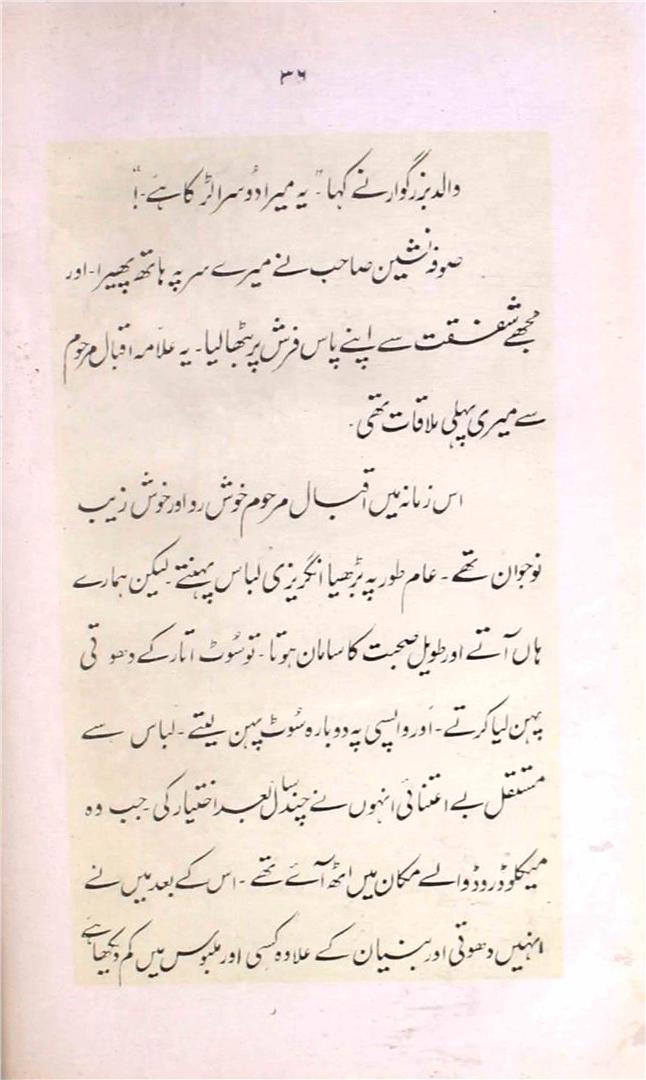 ۳۶
والد بزرگوار نے کہا "۔ یہ میرا دُوسرا لڑکا ہے۔!"
صوفہ نشین صاحب نے میرے سر پہ ہاتھ پھیرا۔ اور
مجھے شفقت سے اپنے پاس فرش پر بٹھا لیا۔ یہ علامہ اقبال مرحوم
سے میری پہلی ملاقات تھی۔
اس زمانہ میں اقبال مرحوم خوش رو اور خوش زیب
نوجوان تھے۔ عام طور پہ بڑھیا انگریزی لباس پہنتے۔ لیکن ہمارے
ہاں آتے اور طویل صحبت کا سامان ہوتا۔ تو سُوٹ اتار کے دھوتی
پہن لیا کرتے۔ اور واپسی پہ دوبارہ سُوٹ پہن لیتے۔ لباس سے
مستقل بے اعتنائی انہوں نے چند سال بعد اختیار کی۔ جب وہ
میکلوڈ روڈ والے مکان میں اٹھ آئے تھے۔ اس کے بعد میں نے
انہیں دھوتی اور بنیان کے علاوہ کسی اور ملبوس میں کم دیکھا ہے